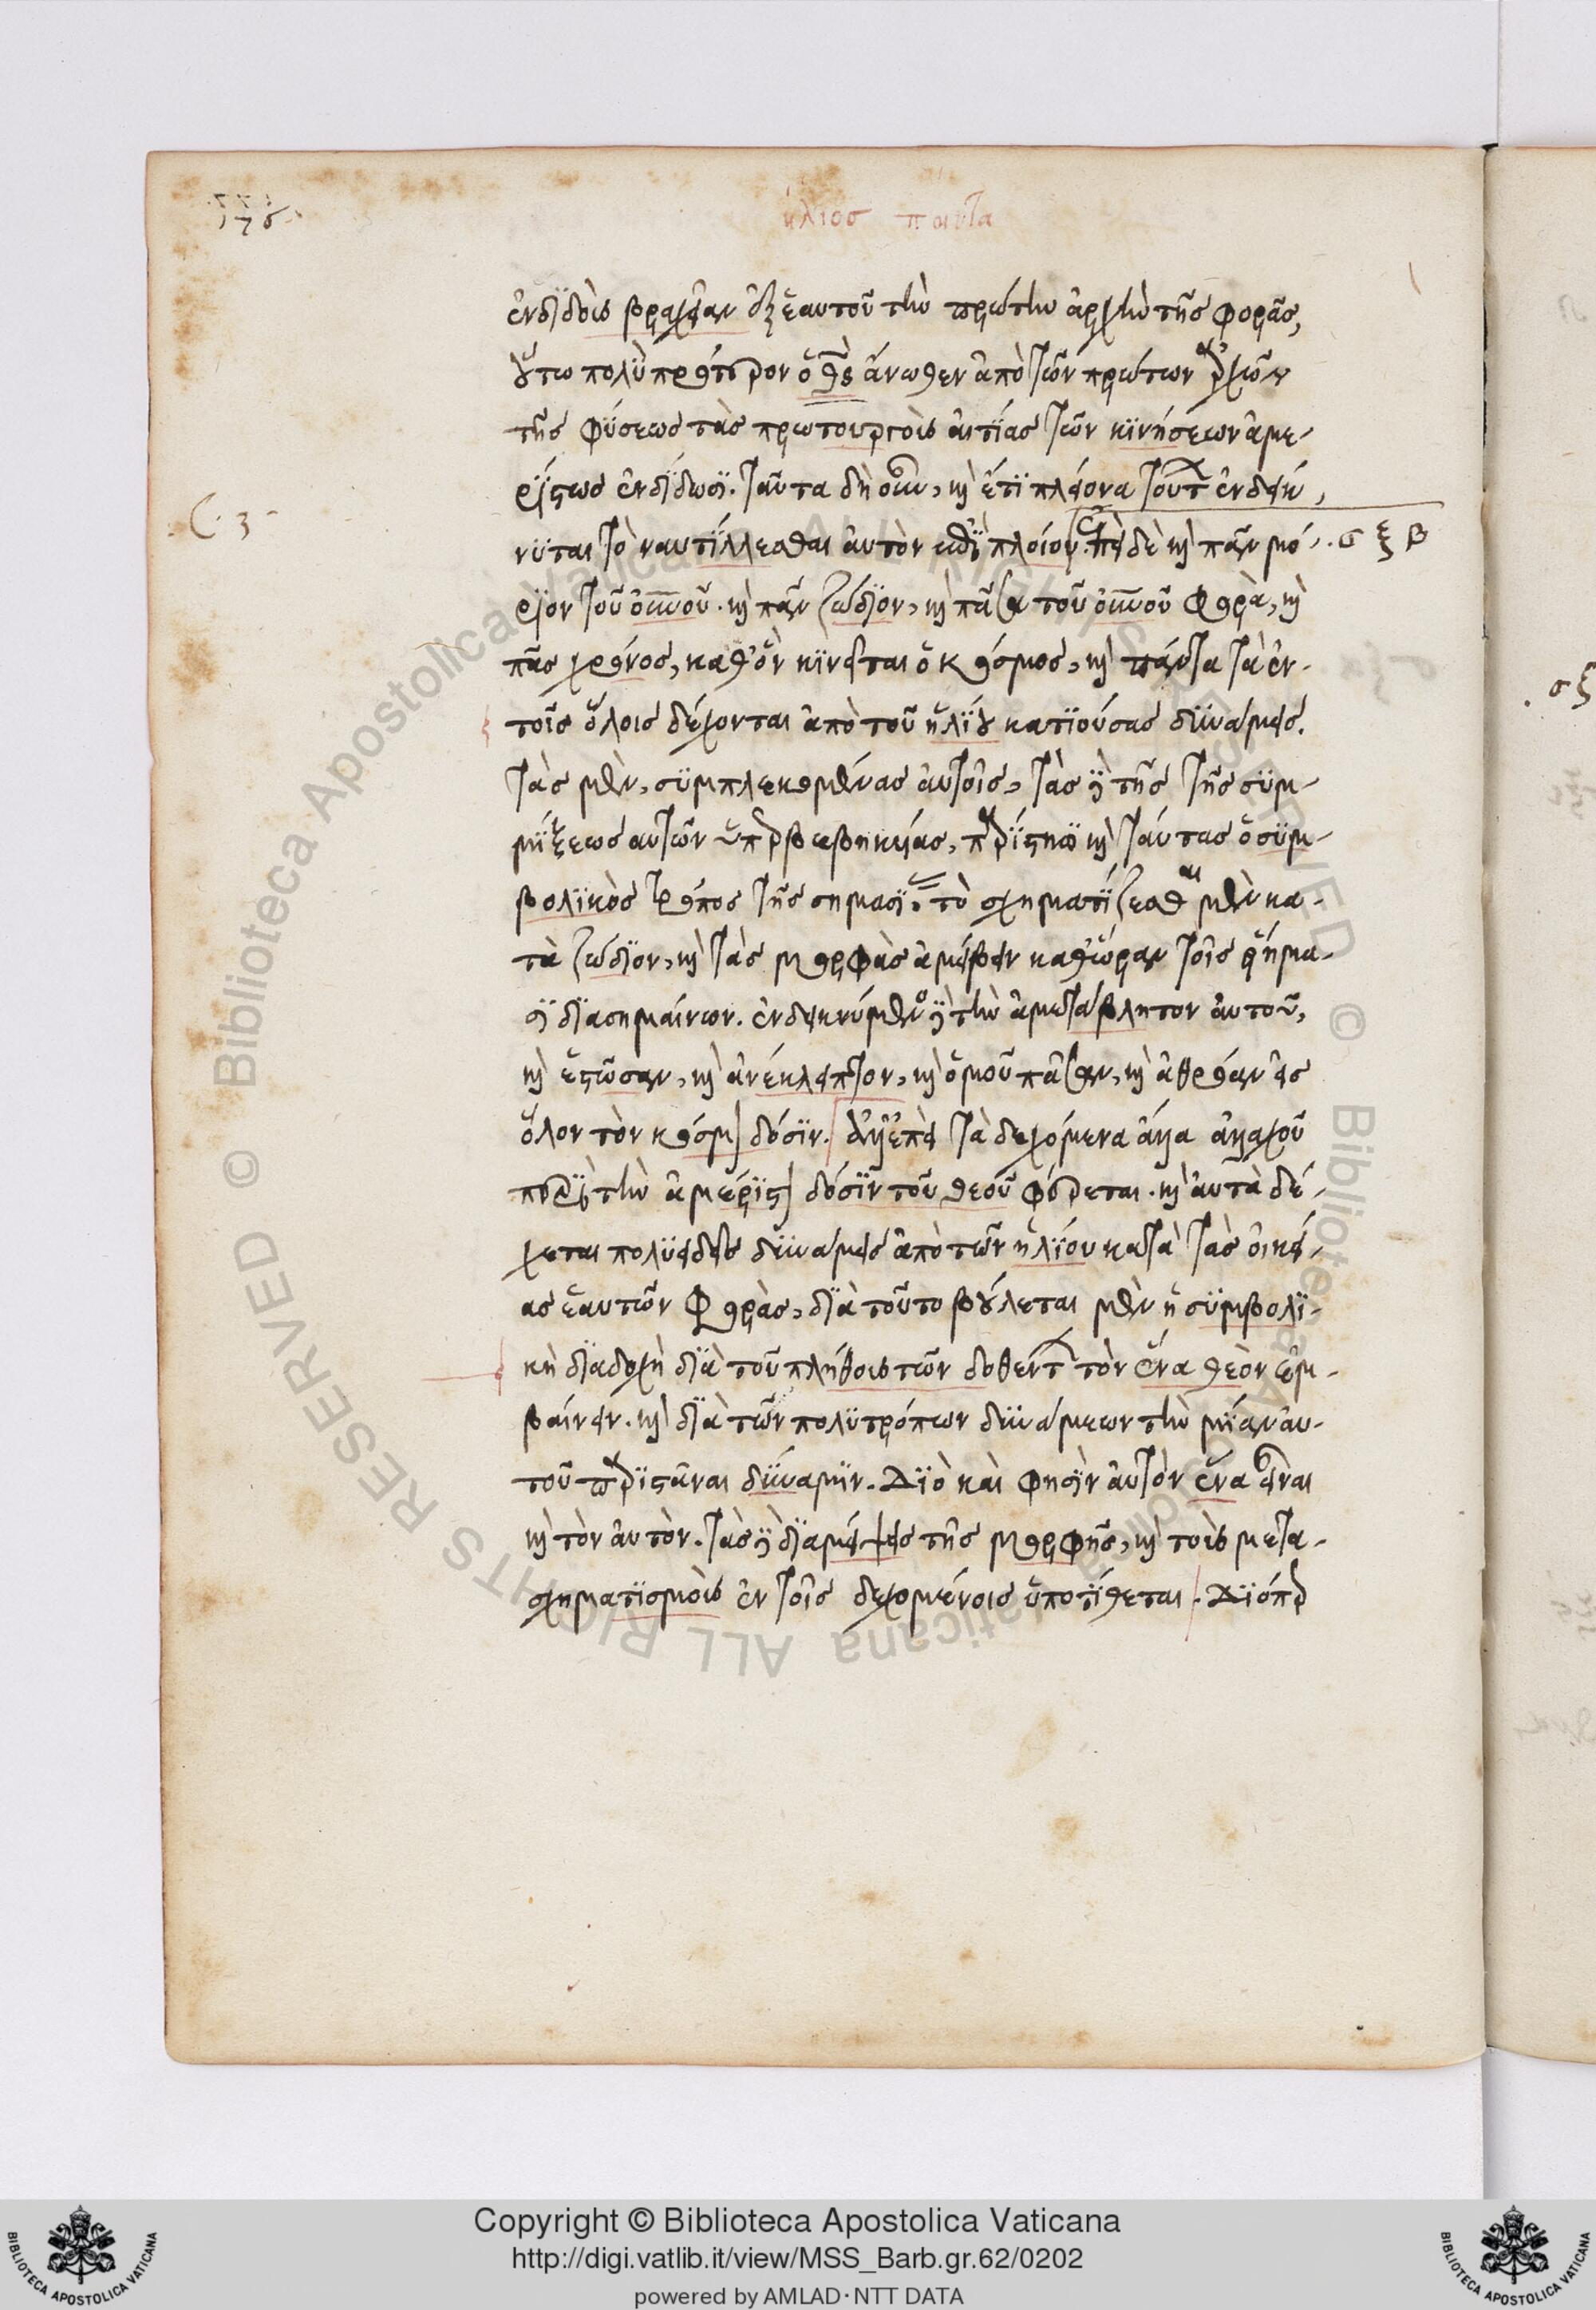 ἥλιος πάντα
176
ἐνδιδοὺς βραχεῖαν ἐξ ἑαυτοῦ τὴν πρώτην ἀρχὴν τῆς φορᾶς,
οὕτω πολὺ πρότερον ὁ θεὸς ἄνωθεν ἀπὸ τῶν πρώτων ἀρχῶν
τῆς φύσεως τὰς πρωτουργοὺς αἰτίας τῶν κινήσεων ἀμε-
ρίστως ἐνδίδωσι. ταῦτα δὴ οὖν, καὶ ἔτι πλείονα τούτων ἐνδείκ-
νυται τὸ ναυτίλλεσθαι αὐτὸν ἐπὶ πλοίου. ἐπεὶ δὲ καὶ πᾶν μό-
ριον τοῦ οὐνοῦ. καὶ πᾶν ζώδιον, καὶ πᾶσα τοῦ οὐνοῦ φορὰ, καὶ
πᾶς χρόνος, καθ' ὃν κινεῖται ὁ κόσμος, καὶ πάντα τὰ ἐν
τοῖς ὅλοις δέχονται ἀπὸ τοῦ ἡλίου κατιούσας δυνάμεις.
τὰς μὲν, συμπλεκομένας αὐτοῖς, τὰς δὲ τῆς τῆς συμ-
μίξεως αὐτῶν ὑπερβεβηκυίας, παρίστησι καὶ ταύτας ὁ συμ-
βολικὸς τρόπος τῆς σημασίας. τὸ σχηματίζεσθαι μὲν κα-
τὰ ζώδιον, καὶ τὰς μορφὰς ἀμείβειν καθ' ὥραν τοῖς ῥήμα-
σι διασημαίνων. ἐνδεικνύμενος δὲ τὴν ἀμετάβλητον αὐτοῦ,
καὶ ἑστῶσαν, καὶ ἀνέκλειπτον, καὶ ὁμοῦ πᾶσαν, καὶ ἀθρόαν εἰς
ὅλον τὸν κόσμον δόσιν. ἀλλ' ἐπεὶ τὰ δεχόμενα ἄλλα ἀλλαχοῦ
περὶ τὴν ἀμέριστον δόσιν τοῦ θεοῦ φέρεται. καὶ αὐτὰ δέ-
χεται πολυειδεῖς δυνάμεις ἀπὸ τῶν ἡλίου κατὰ τὰς οἰκεί-
ας ἑαυτῶν φορὰς, διὰ τοῦτο βούλεται μὲν ἡ συμβολι-
κὴ διαδοχὴ διὰ τοῦ πλήθους τῶν δοθέντων τὸν ἕνα θεὸν ἐμ-
βαίνειν. καὶ διὰ τῶν πολυτρόπων δυνάμεων τὴν μίαν αὐ-
τοῦ παριστᾶναι δύναμιν. Διὸ καὶ φησὶν αὐτὸν ἕνα εἶναι
καὶ τὸν αὐτὸν. τὰς δὲ διαμείψεις τῆς μορφῆς, καὶ τοὺς μετα-
σχηματισμοὺς ἐν τοῖς δεχομένοις ὑποτίθεται. Διόπερ
σξβ
Copyright © Biblioteca Apostolica Vaticana
http://digi.vatlib.it/view/MSS_Barb.gr.62/0202
powered by AMLAD·NTT DATA